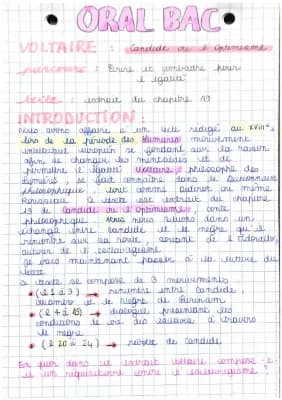 ORAL BAC
VOLTAIRE : Candide ou l'Optimisme
parcours : Ecrire et combattre pour
l'égalité
texte : extrait du chapitre 19
INTRODUCTION :
Nous avons affaire à un texte rédigé au XVIIIe s
lors de la période des Lumières mouvement
intellectuel européen se fondant sur la raison
afin de changer les mentalités et de
permettre l'égalité. Voltaire philosophe des
Lumières se fait connaître dans le dictionnaire
philosophique, tout comme Diderot ou même
Ce texte est extrait du chapitre
19 de Candide ou l'optimisme, conte
philosophique. Nous nous situons dans un
échange entre Candide et le nègre qu'il
rencontre sur sa route sortant de l'Eldorado,
autour de l'esclavagisme.
Je vais maintenant passer à la lecture du
texte
Ce texte se compose de 3 mouvements
(l 1 à 3) → rencontre entre Candide,
et le nègre de Surinam
(l 4 à 19) → dialogue présentant les
conditions de vie des esclaves à travers
le nègre
(l 20 à 24) → révolte de Candide
En quoi dans cet extrait Voltaire compose-t-
il un réquisitoire contre l'esclavagisme ?